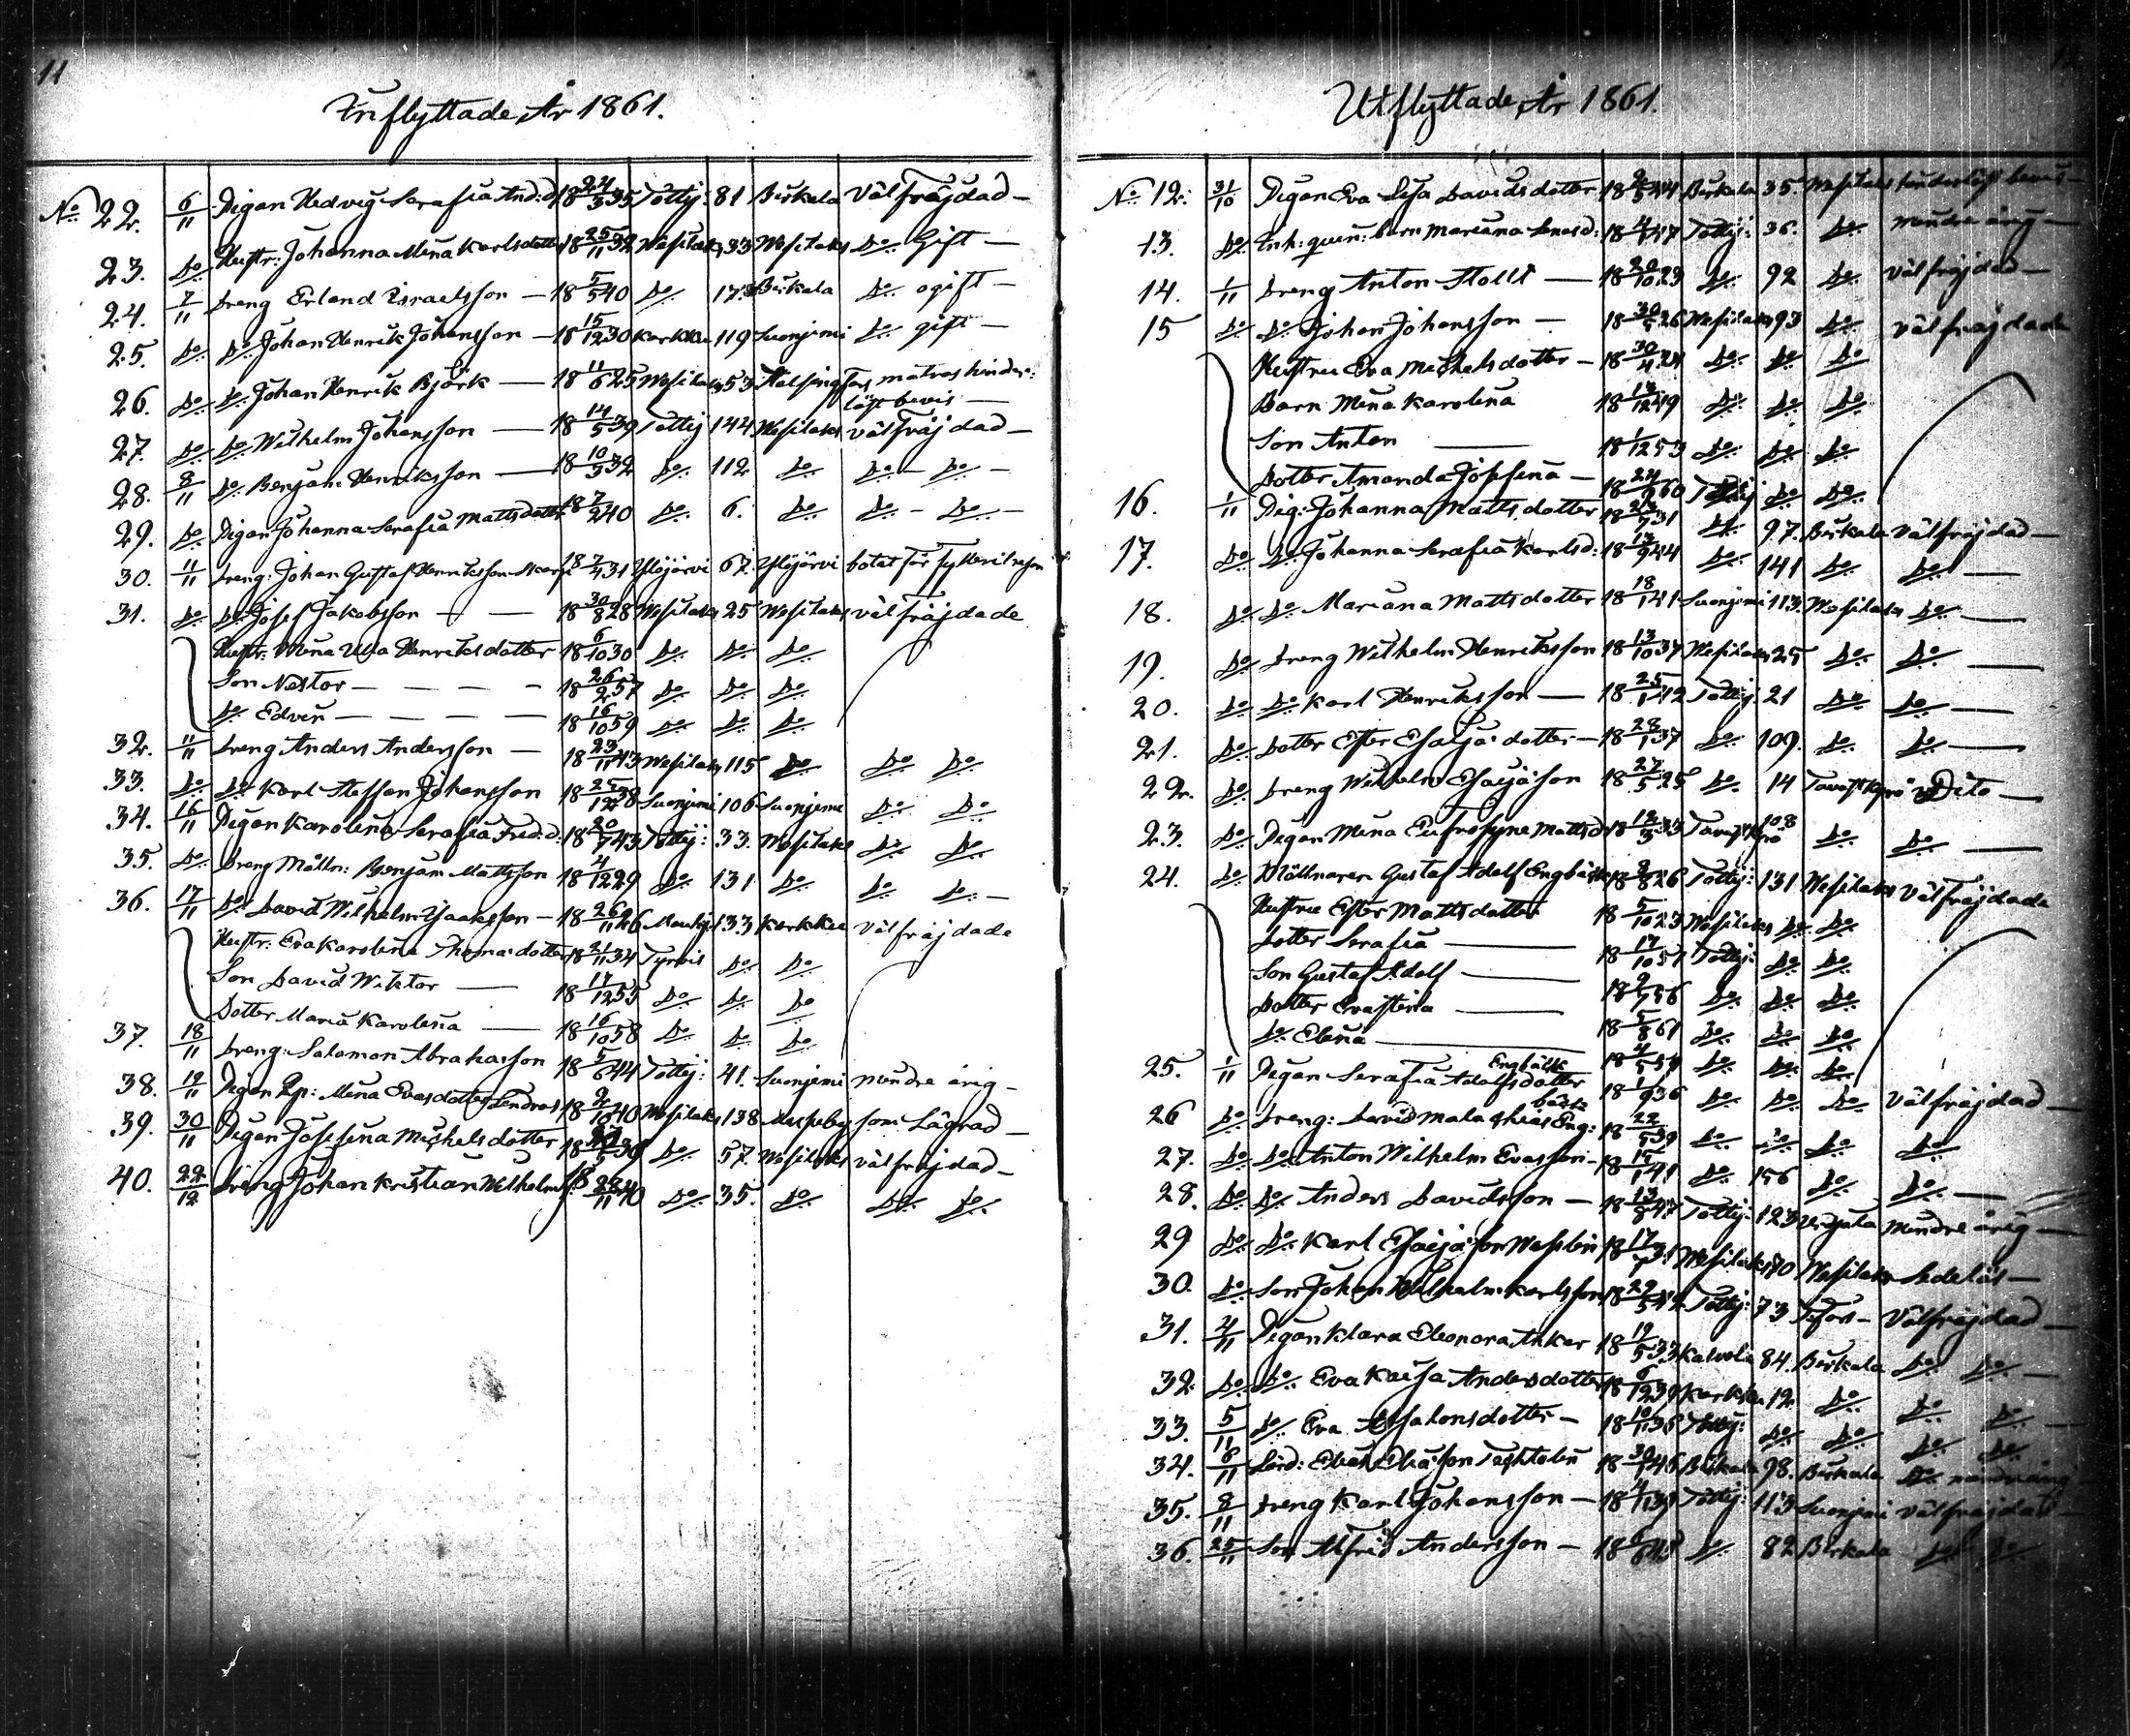 11
Inflyttade År 1861.
No 22. 6/11 Pigan Hedvig Serafia And:d. 18 24/3 35 Tottij: 81 Birkala Välfräjdad —
23. Do Hustr: Johanna Mina Karlsdotter 18 25/11 32 Wesilaks 33 Wesilaks Do Gift —
24. 7/11 Dreng Erland Israelsson — 18 5/5 40 Do 17 Birkala Do ogift —
25. Do Do Johan Henrik Johansson — 18 15/12 30 Karkku 119 Suonjemi Do gift —
26. Do Do Johan Henrik Björk — 18 11/6 25 Wesilaks 53 Helsingfors matros hinder:
löst bevis —
27. Do Do Wilhelm Johansson — 18 14/5 39 Tottij 144 Wesilaks välfräjdad —
28. 8/11 Do Benjam: Henriksson — 18 10/3 32 Do 112 Do Do — Do —
29. Do Pigan Johanna Serafia Mattsdotter 18 7/2 40 Do 6. Do Do — Do —
30. 11/11 Dreng: Johan Gustaf Henriksson 18 7/4 31 Ylöjärvi 67. Ylöjärvi botat för fylleri
31. Do Do Josef Jakobsson — — 18 30/8 28 Wesilaks 25 Wesilaks välfräjdade
Hustr: Mina Ulla Henriksdotter 18 6/10 30 Do Do Do
Son Nestor — — — — 18 26/2 57 Do Do Do
Do Edvin — — — — 18 16/10 59 Do Do Do
32. 11/11 Dreng Anders Andersson — 18 23/11 43 Wesilaks 115 Do Do Do
33. Do Do Karl Steffan Johansson 18 25/12 38 Suonjemi 106 Suonjemi Do Do
34. 16/11 Pigan Karolina Serafia Fred:d. 18 20/7 43 Tottij: 33. Wesilaks Do Do
35. Do Dreng Mölln: Benjam Mattsson 18 4/12 29 Do 131 Do Do Do —
36. 17/11 Do David Wilhelm Isaaksson — 18 26/11 26 133 Karkku välfräjdade
Hustr: Eva Karolina Thomasdotter 18 21/11 34 Tyrvis Do Do
Son David Wiktor — 18 17/12 55 Do Do Do
Dotter Maria Karolina — 18 16/10 58 Do Do Do
37. 18/11 Dreng: Salomon Abrahasson 18 5/6 44 Tottij: 41. Suonjemi mindre årig —
38. 19/11 Pigan Mina Evasdotter 18 2/10 40 Wesilaks 138 som Lägrad —
39. 30/11 Pigan Josefina Michelsdotter 39 Do 57. Wesilaks välfräjdad —
40. 22/12 Dreng Johan Kristian Wilhelms: 18 28/11 40 Do 35. Do Do Do
Utflyttade År 1861.
No 12: 31/10 Pigan Eva Lisa Davidsdotter 44 Birkala 35. Wesilaks hinderlöst bevis —
13. Do Inh: quin: barn Mariana Lenasd: 47 Tottij: 36. Do mindre årig —
14. 1/11 Dreng Anton Stolt — 18 20/10 23 Do 92 Do välfräjdad —
15 Do Do Johan Johansson — 18 30/5 26 Wesilaks 93 Do välfräjdade
Hustru Eva Michelsdotter — 18 30/4 24 Do Do Do
Barn Mina Karolina 18 13/12 49 Do Do Do
Son Anton — 18 1/12 53 Do Do Do
Dotter Amanda Josefina — 60 Tottij Do Do
16. 1/11 Pig: Johanna Mattsdotter 31 Do 97. Birkala Välfräjdad —
17. Do Do Johanna Serafia Karlsd: 18 13/9 44 Do 141 Do Do —
18. Do Do Mariana Mattsdotter 18 18/1 41 Suonjemi 113. Wesilaks Do —
19. Do Dreng Wilhelm Henriksson 18 13/10 37 Wesilaks 25 Do Do —
20. Do Do Karl Henriksson — 18 25/1 42 Tottij: 21 Do Do —
21. Do Dotter Ester Esaijædotter — 18 28/1 37 Do 109. Do Do —
22. Do Dreng Wilhelm Esaijæson 18 27/5 25 Do 14 Tavastkyrö Dito —
23. Do Pigan Mina Eufrosyne Mattsd: 18 12/3 33 Tavastkyrö 108 Do Do —
24. Do Möllnaren Gustaf Adolf Engbäck 26 Tottij: 131 Wesilaks välfräjdade
Hustru Ester Mattsdotter 18 5/10 23 Wesilaks Do Do
Dotter Serafia — 18 17/10 51 Tottij: Do Do
Son Gustaf Adolf — 56 Do Do Do
Dotter Evastina — 18 5/8 61 Do Do Do
Do Elina — 18 4/5 54 Do Do Do
25. 1/11 Pigan Serafia Adolfsdotter Engbäck 18 1/9 36 Do Do Do Välfräjdad —
26 Do Dreng: David Malachias Eng: bäck 18 22/5 39 Do Do Do Do
27. Do Do Anton Wilhelm Evasson — 41 Do 156 Do Do —
28. Do Do Anders Davidsson — 18 13/8 47 Tottij: 123 Urdjala mindre årig —
29 Do Do Karl Esaijæson Weslin 18 17/7 31 Wesilaks 70 Wesilaks Sedelös —
30. Do Son Johan Wilhelm Karlsson 18 22/5 42 Tottij: 73 — Välfräjdad —
31. 4/11 Pigan Klara Eleonora Anker 18 19/5 33 Kalvola 84. Birkala Do Do —
32. Do Do Eva Kaisa Andersdotter 18 6/12 39 Karkku 12 Do Do Do —
33. 5/11 Do Eva Absalonsdotter — 18 10/1 36 Tottij: Do Do Do Do
34. 6/11 Lärd: Elias Eliæson Tachtolin 46 Birkala 98. Birkala Do mindreårig
35. 8/11 Dreng Karl Johansson — 39 Tottij: 113 Suonjemi välfräjdad —
36. 25/11 Son Alfrid Andersson — Do 82 Birkala Do Do